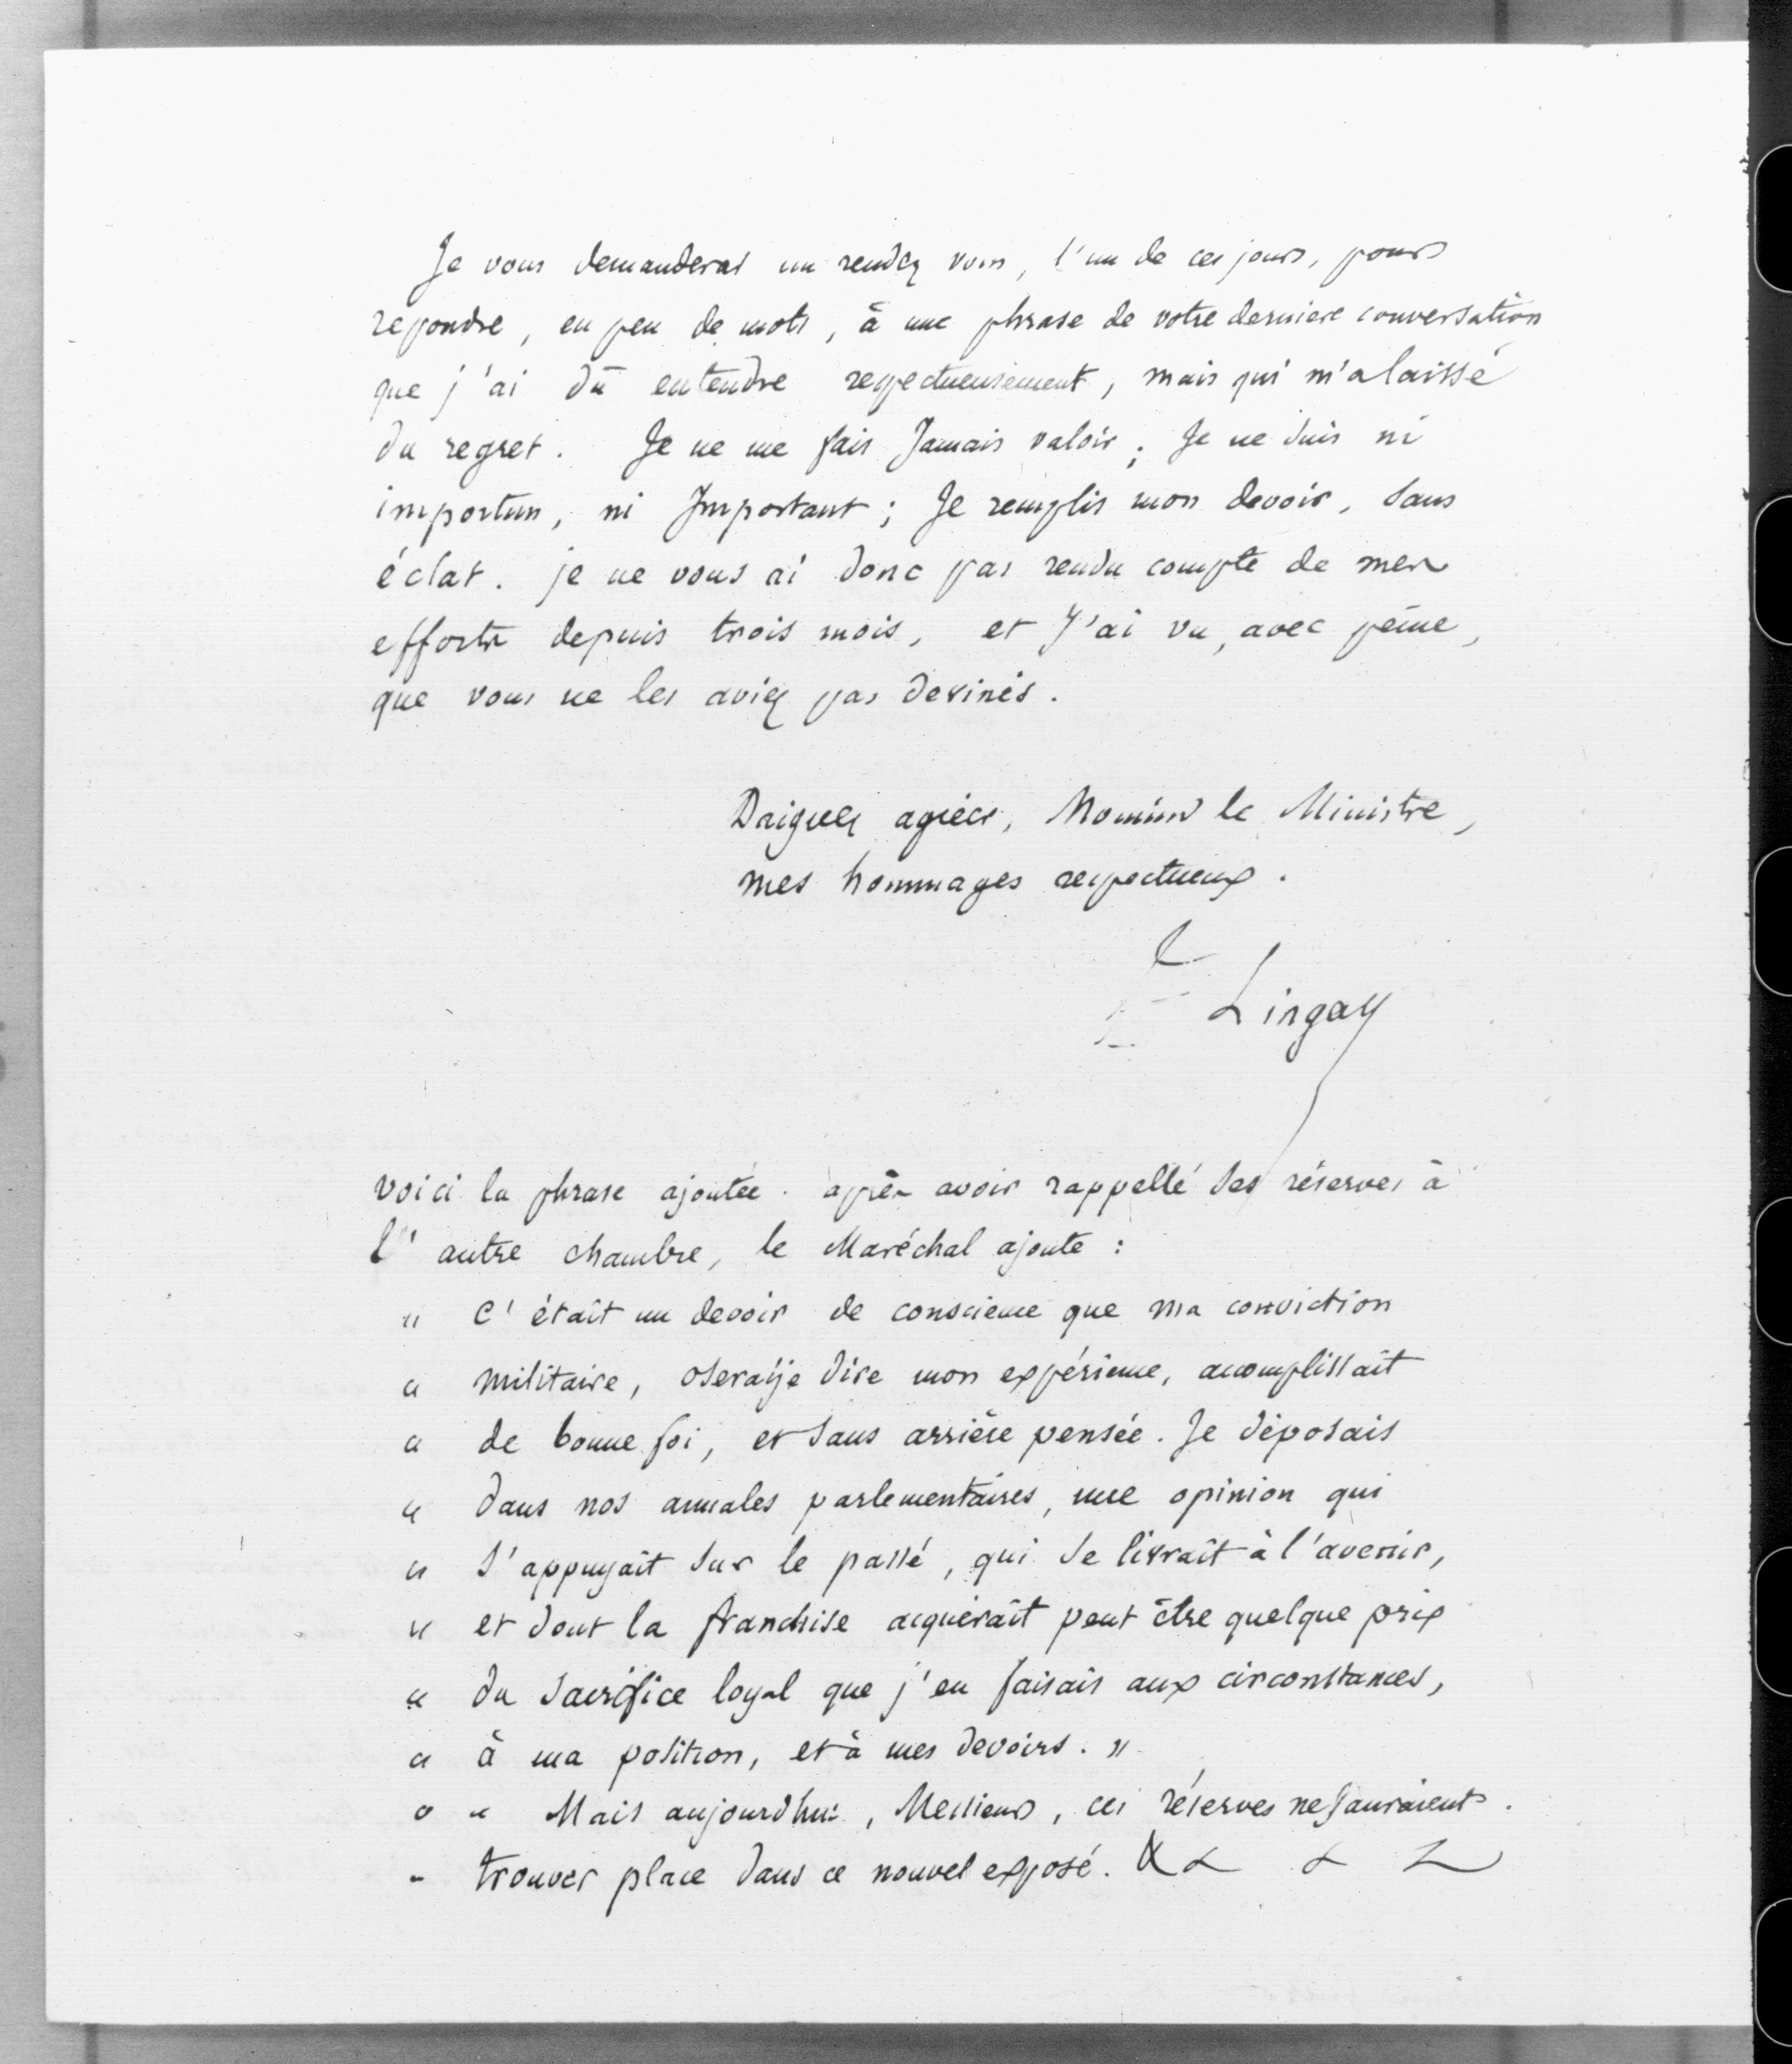 Je vous demanderai un rendez vous, l'un de ces jours, pour
repondre, en peu de mots, à une phrase de votre derniere conversation
que j'ai dû entendre respectueusement, mais qui m'a laissé
du regret. Je ne me fais Jamais valoir; Je ne suis ni
importun, ni Important; Je remplis mon devoir, sans
éclat. je ne vous ai donc pas rendu compte de mes
efforts depuis trois mois, et J'ai vu, avec peine,
que vous ne les aviez pas devinés.
Daignez agréer, Monsieur le Ministre,
mes hommages respectueux.
Lingay
voici la phrase ajoutée. après avoir rappellé ses réserves à
l'autre chambre, le Maréchal ajoute :
" C'était un devoir de conscience que ma conviction
" militaire, oserai je dire mon expérience, accomplissait
" de bonne foi, et sans arrière pensée. Je déposais
" dans nos annales parlementaires, une opinion qui
" s'appuyait sur le passé, qui se livrait à l'avenir,
" et dont la franchise acquérait peut être quelque prix
" du sacrifice loyal que j'en faisais aux circonstances,
" à ma position, et à mes devoirs. "
" " Mais aujourdhui, Messieurs, ces réserves ne sauraient
" trouver place dans ce nouvel exposé. &